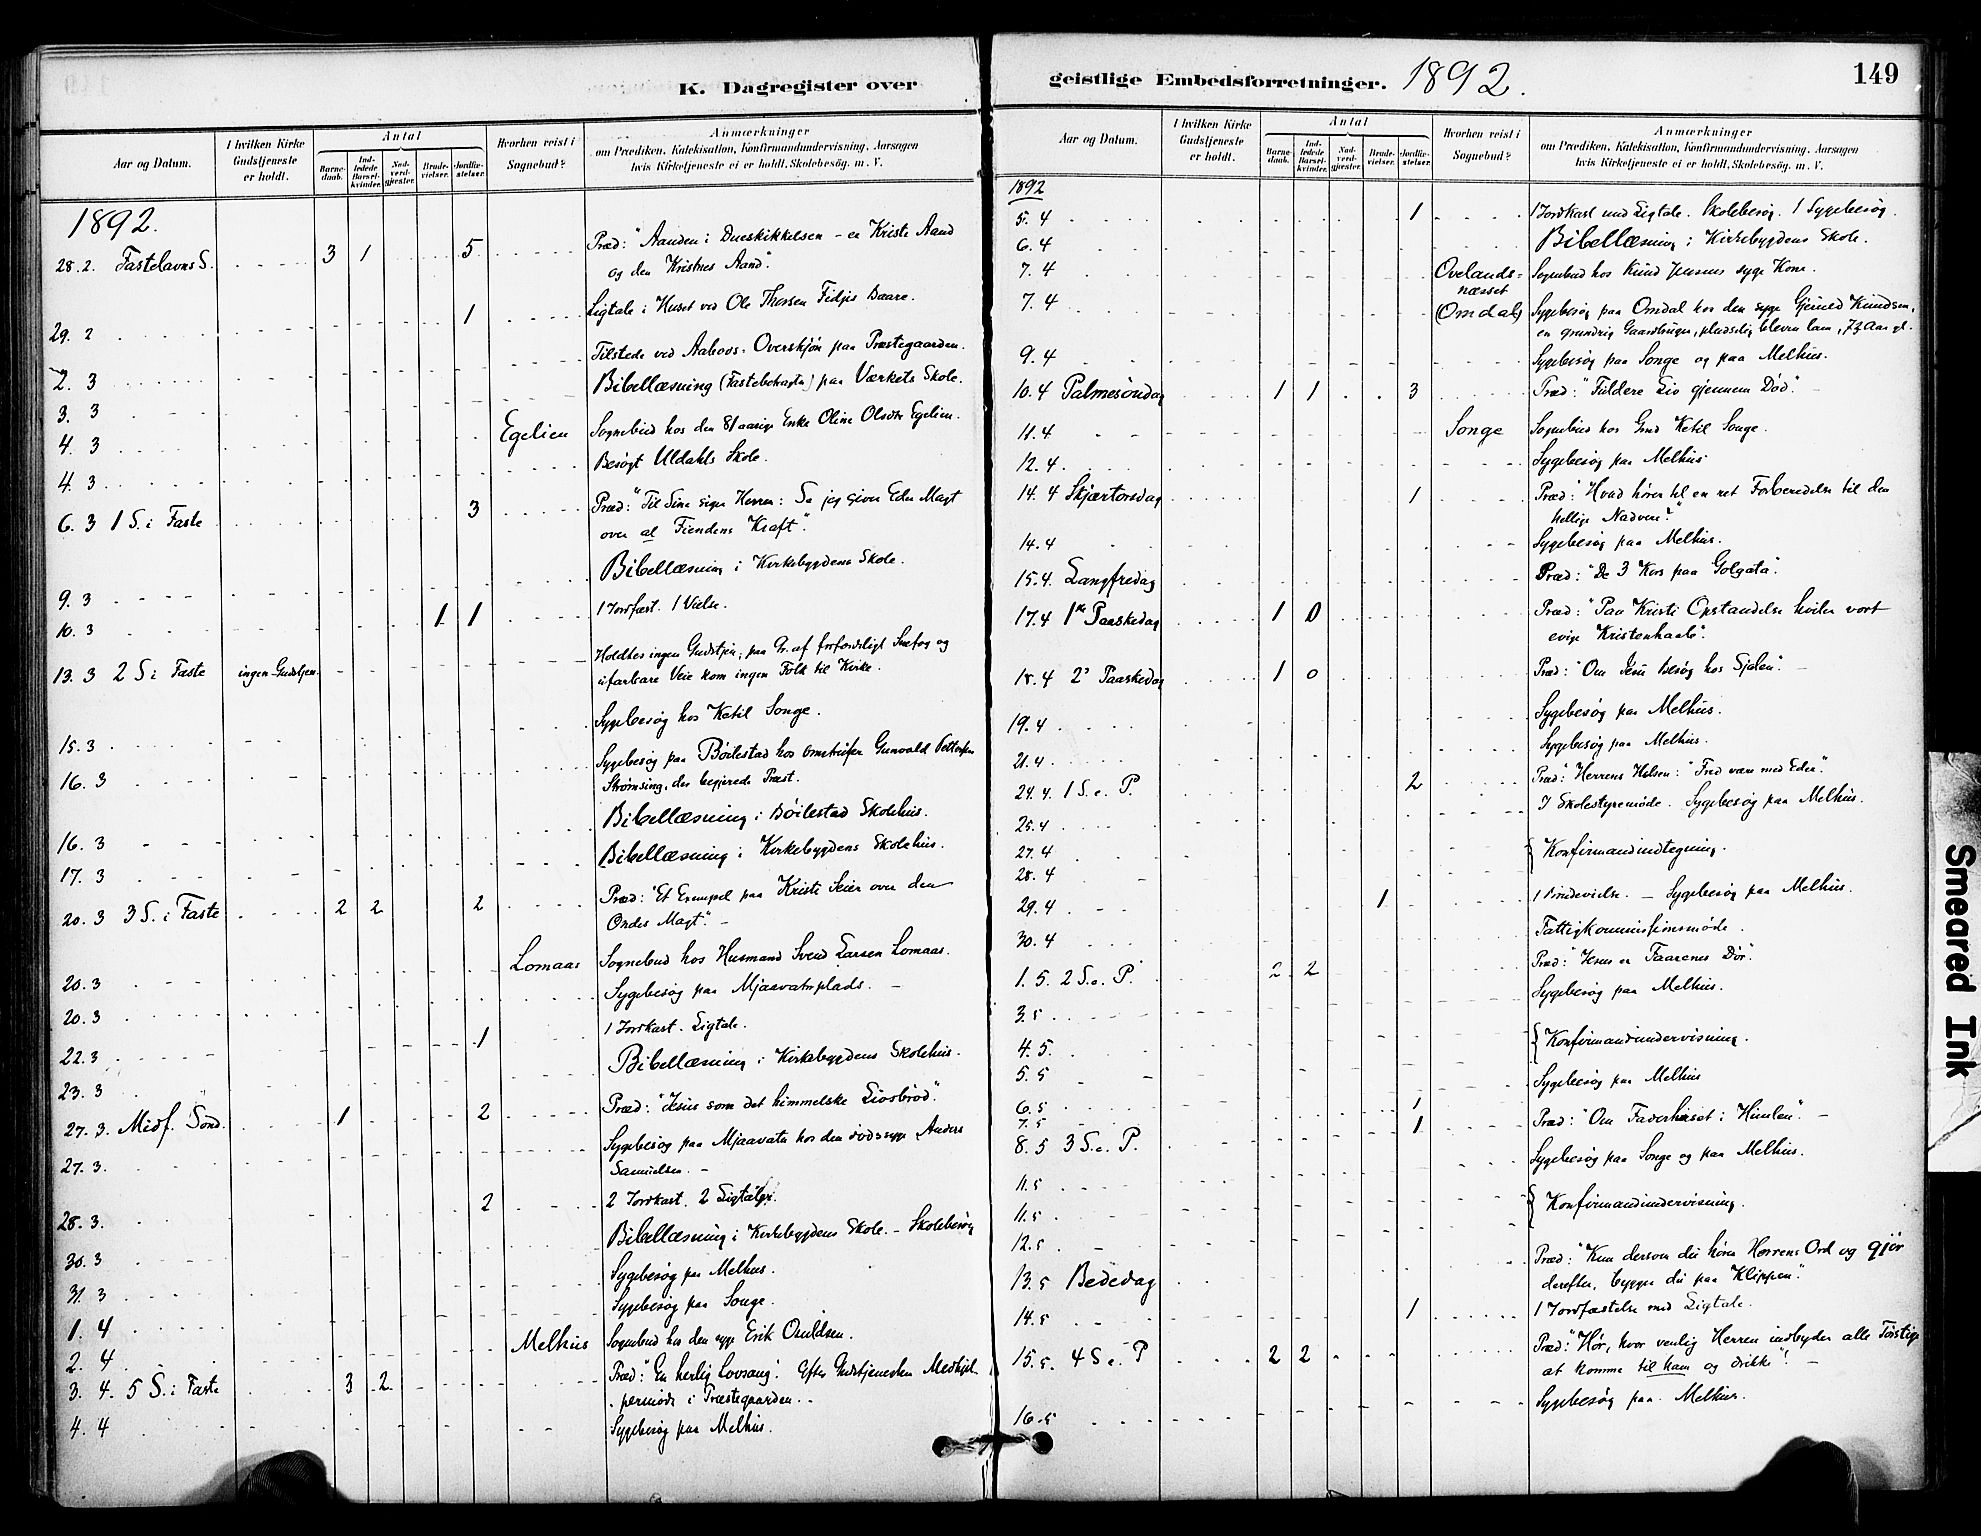 K. Dagregister over
Aar og Datum.
I hvilken Kirke Gudstjeneste er holdt.
Antal
Barnedaab.
Indledede Barselkvinder.
Nadverdgjester.
Brudevielser.
Jordfæstelser.
Hvorhen reist i Sognebud?
Anmærkninger
om Prædiken, Katekisation, Konfirmandundervisning, Aarsagen
hvis Kirketjeneste ei er holdt, Skolebesøg, m. V.
1892.
28. 2. Fastelavns S. 3 1 5 Præd: "Aanden i Dueskikkelsen – er Kristi Aand
og den Kristnes Aand".
29. 2 1 Ligtale i Huset ved Ole Thorsen Fidjes Baare.
2. 3 Tilstede ved Aabods-Overskjøn paa Præstegaarden.
3. 3 Bibellæsning (Fastebetragtn) paa Værkets Skole.
4. 3 Egelien Sognebud hos den 81 aarige Enke Oline Olsdtr Egelien.
4. 3 Besøgt Uldahls Skole.
6. 3 1 S. i Faste 3 Præd: "Til Sine siger Herren: Se jeg giver Eder Magt
over al Fiendens Kraft".
9. 3 Bibellæsning i Kirkebygdens Skole.
10. 3 1 1 1 Jordfæst. 1 Vielse.
13. 3 2 S. i Faste ingen Gudstjen. Holdtes ingen Gudstjen; paa Gr. af forfærdeligt Snefog og
ufarbare Veie kom ingen Folk til Kirke.
15. 3 Sygebesøg hos Ketil Songe.
16. 3 Sygebesøg paa Bøilestad hos Omstreifer Gunvald Pettersen
Strømsing, der begjerede Præst.
16. 3 Bibellæsning i Bøilestad Skolehus.
17. 3 Bibellæsning i Kirkebygdens Skolehus.
20. 3 3 S. i Faste 2 2 2 Præd: "Et Exempel paa Kristi Seier over den
Ondes Magt". –
20. 3 Lomaas Sognebud hos Husmand Svend Larsen Lomaas.
20. 3 Sygebesøg paa Mjaavatnplads. –
22. 3 1 1 Jordkast. Ligtale.
23. 3 Bibellæsning i Kirkebygdens Skolehus.
27. 3. Midf. Sønd. 1 2 Præd: "Jesus som det himmelske Livsbrød".
27. 3. Sygebesøg paa Mjaavatn hos den dødssyge Anders
Samuelsen. –
28. 3. 2 2 Jordkast. 2 Ligtaler.
30. 3 Bibellæsning i Kirkebygdens Skole. – Skolebesøg
31. 3 Sygebesøg paa Melhus.
1. 4 Sygebesøg paa Songe.
2. 4 Melhus Sognebud hos den syge Erik Omldsen.
3. 4. 5 S. i Faste 3 2 Præd: "En herlig Lovsang". Efter Gudstjenesten Medhjel-
permøde i Præstegaarden. –
4. 4 Sygebesøg paa Melhus.
geistlige Embedsforretninger. 1892.
149
Aar og Datum.
I hvilken Kirke Gudstjeneste er holdt.
Antal
Barnedaab.
Indledede Barselkvinder.
Nadverdgjester.
Brudevielser.
Jordfæstelser.
Hvorhen reist i Sognebud?
Anmærkninger
om Prædiken, Katekisation, Konfirmandundervisning, Aarsagen
hvis Kirketjeneste ei er holdt, Skolebesøg, m. V.
1892
5. 4 1 1 Jordkast med Ligtale. Skolebesøg. 1 Sygebesøg.
6. 4 Bibellæsning i Kirkebygdens Skole.
7. 4 Ovelands-
næsset Sognebud hos Knud Jensens syge Kone.
7. 4 (Omdal) Sygebesøg paa Omdal hos den syge Gjeruld Knudsen,
en grundrig Gaardbruger, pludselig bleven lam, 73 Aar gl.
9. 4 Sygebesøg paa Songe og paa Melhus.
10. 4 Palmesøndag 1 1 3 Præd: "Fuldere Liv gjennem Død". –
11. 4 Songe Sognebud hos Grd Ketil Songe.
12. 4. Sygebesøg paa Melhus
14. 4 Skjærtorsdag 1 Præd: "Hvad hører til en ret Forberedelse til den
hellige Nadvere?"
14. 4 Sygebesøg paa Melhus.
15. 4. Langfredag Præd: "De 3 Kors paa Golgata".
17. 4 1ste Paaskedag 1 0 Præd: "Paa Kristi Opstandelse hviler vort
evige Kristenhaab".
18. 4 2d Paaskedag 1 0 Præd: "Om Jesu Besøg hos Sjelen". –
19. 4 Sygebesøg paa Melhus.
21. 4 Sygebesøg paa Melhus.
24. 4. 1 S. e. P. 2 Præd: "Herrens Hilsen: "Fred være med Eder".
25. 4 I Skolestyremøde. Sygebesøg paa Melhus.
27. 4
28. 4 { Konfirmandindtegning.
29. 4 1 1 Brudevielse. – Sygebesøg paa Melhus.
30. 4 Fattigkommissionsmøde.
1. 5. 2 S. e. P. 2 2 Præd: "Jesus er Faarenes Dør".
3. 5 Sygebesøg paa Melhus.
4. 5.
5. 5 { Konfirmandundervisning.
6. 5 1 Sygebesøg paa Melhus
7. 5 1
8. 5 3 S. e. P. Præd: "Om Faderhuset i Himlen". –
11. 5 Sygebesøg paa Songe og paa Melhus.
11. 5
12. 5 { Konfirmandundervisning.
13. 5 Bededag Præd: "Kun dersom du hører Herrens Ord og gjør
derefter, bygger du paa Klippen".
14. 5 1 1 Jordfæstelse med Ligtale.
15. 5. 4 S. e. P 2 2 Præd: "Hør, hvor venlig Herren indbyder alle Tørstige
at komme til ham og drikke"! –
16. 5 Sygebesøg paa Melhus.
Smeared Ink